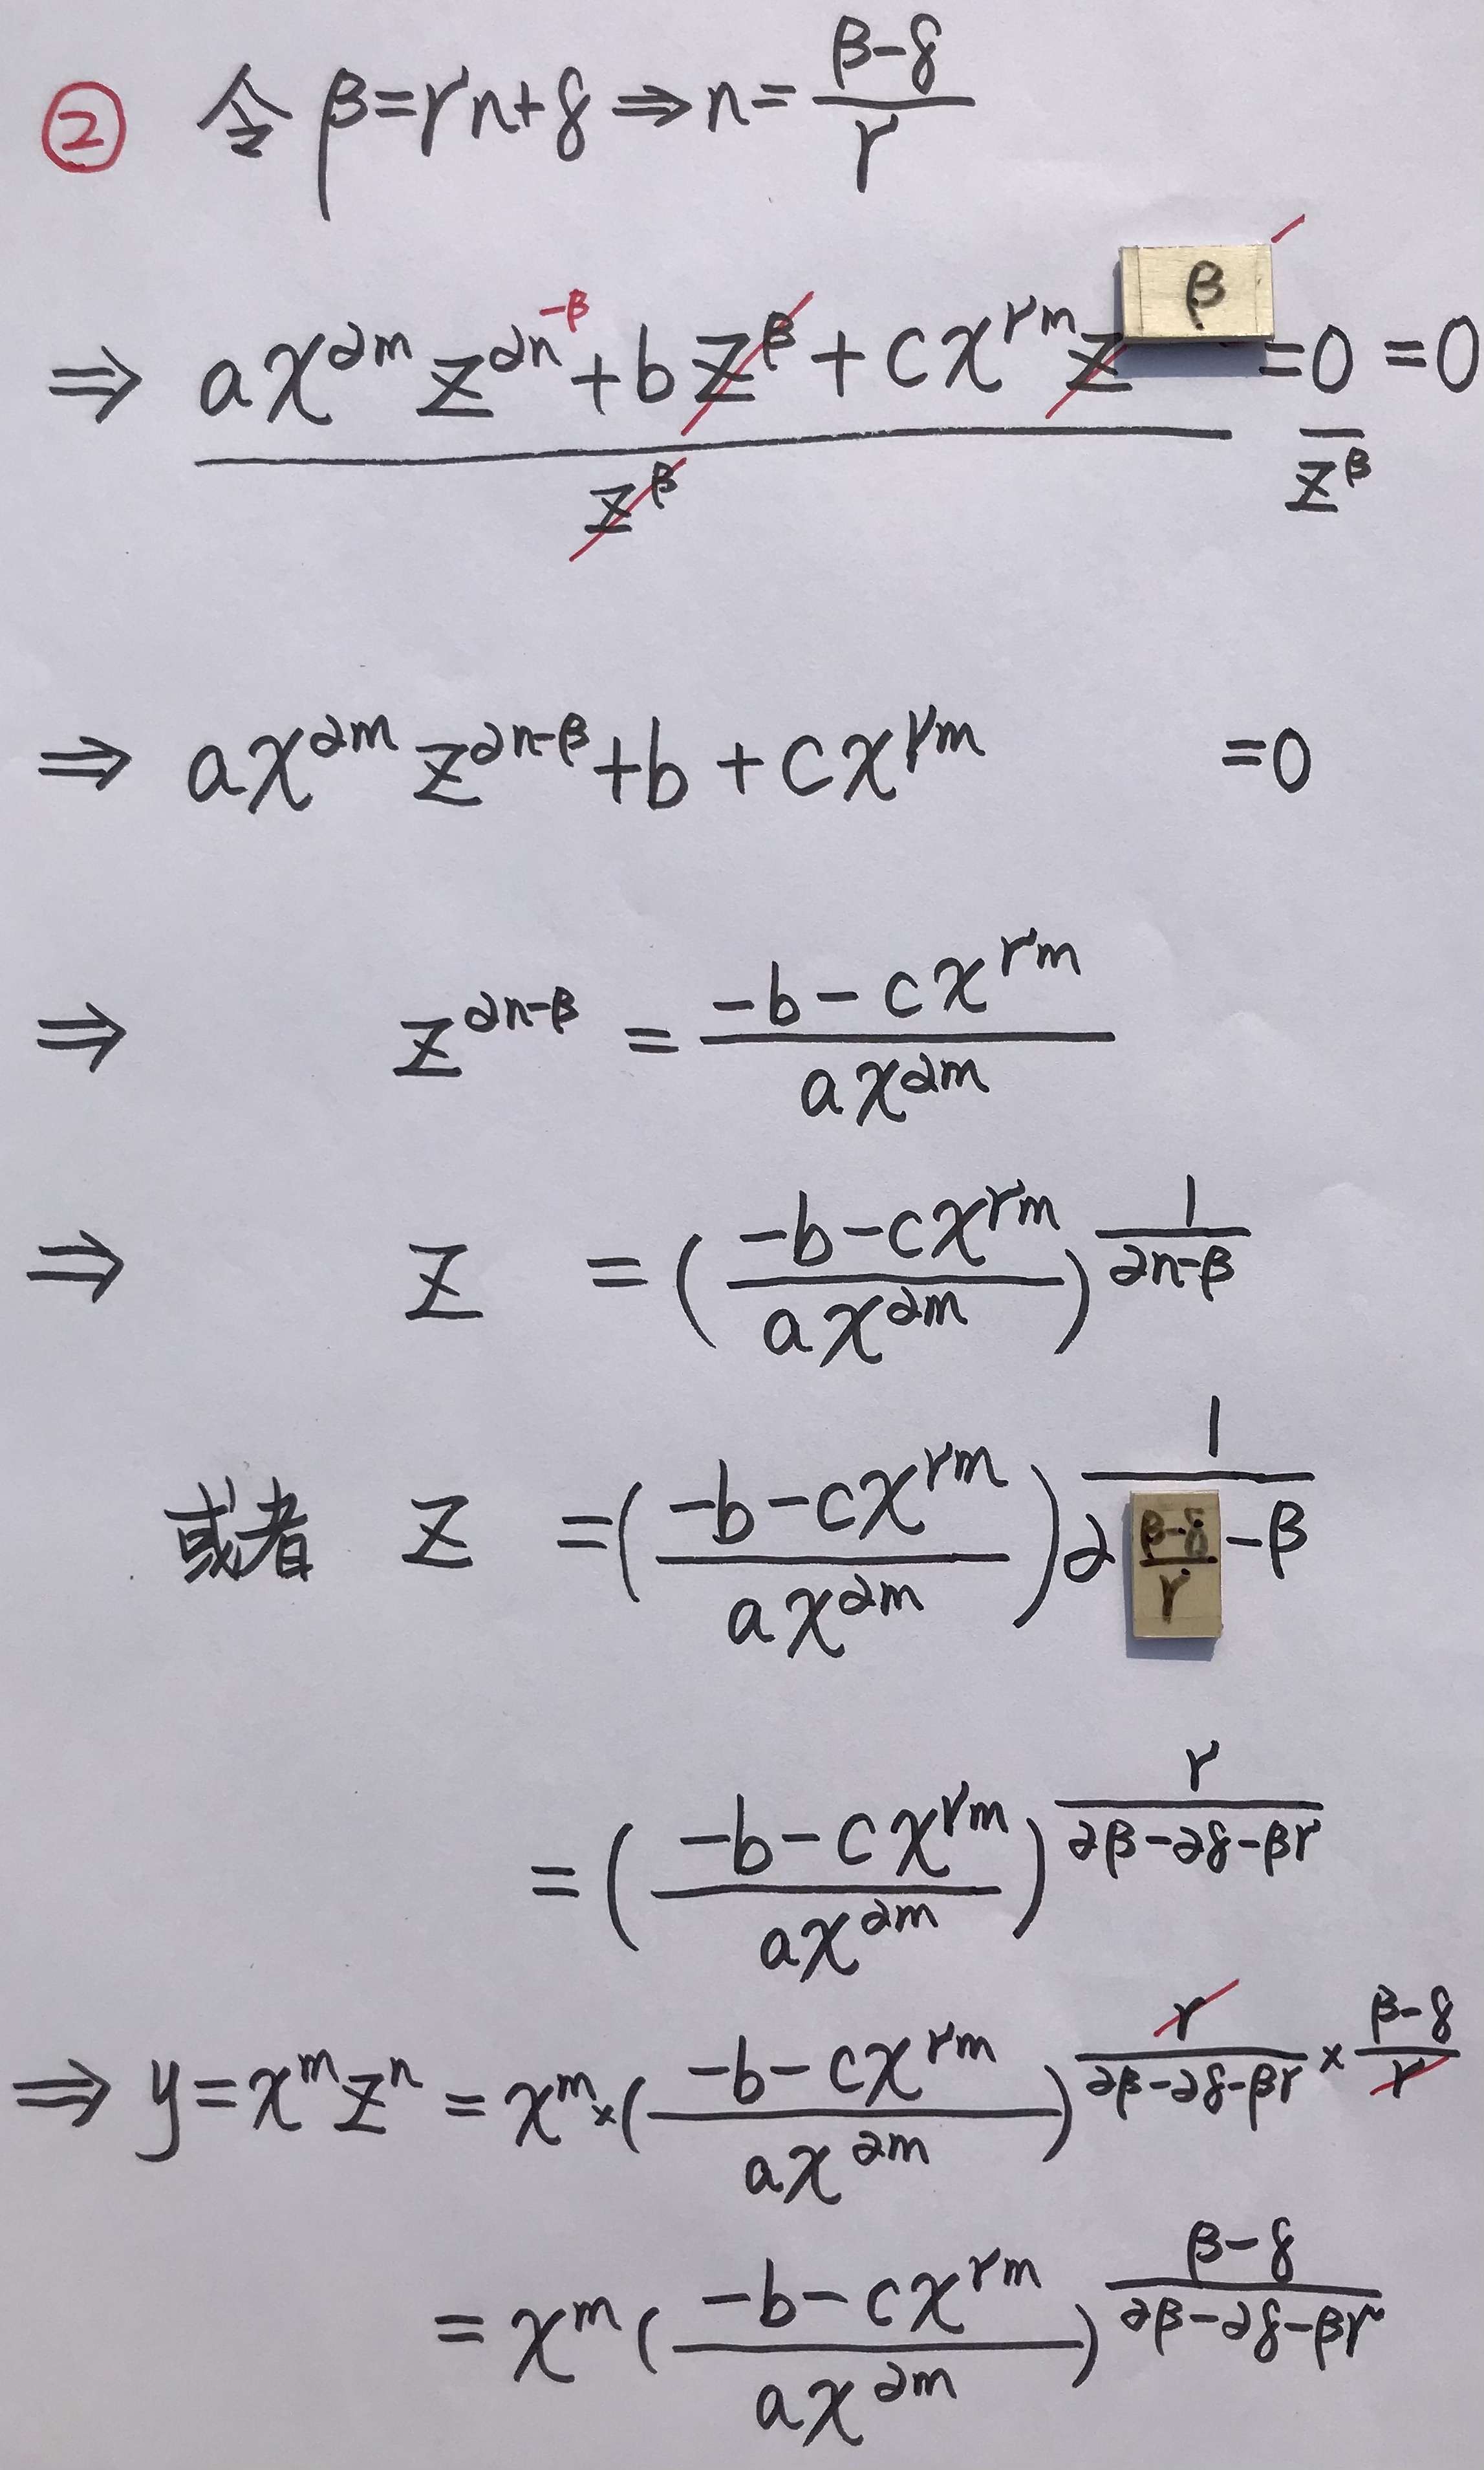 ② 令 β=γn+δ ⇒ n = (β-δ)/γ
⇒ (ax^{∂m} z^{∂n-β} + b z^β + cx^{γm} z^β)/z^β = 0/z^β = 0
⇒ ax^{∂m} z^{∂n-β} + b + cx^{γm} = 0
⇒ z^{∂n-β} = (-b-cx^{γm})/(ax^{∂m})
⇒ z = ((-b-cx^{γm})/(ax^{∂m}))^{1/(∂n-β)}
或者 z = ((-b-cx^{γm})/(ax^{∂m}))^{1/(∂ (β-δ)/γ -β)}
= ((-b-cx^{γm})/(ax^{∂m}))^{γ/(∂β-∂δ-βγ)}
⇒ y = x^m z^n = x^m × ((-b-cx^{γm})/(ax^{∂m}))^{γ/(∂β-∂δ-βγ) × (β-δ)/γ}
= x^m ((-b-cx^{γm})/(ax^{∂m}))^{(β-δ)/(∂β-∂δ-βγ)}